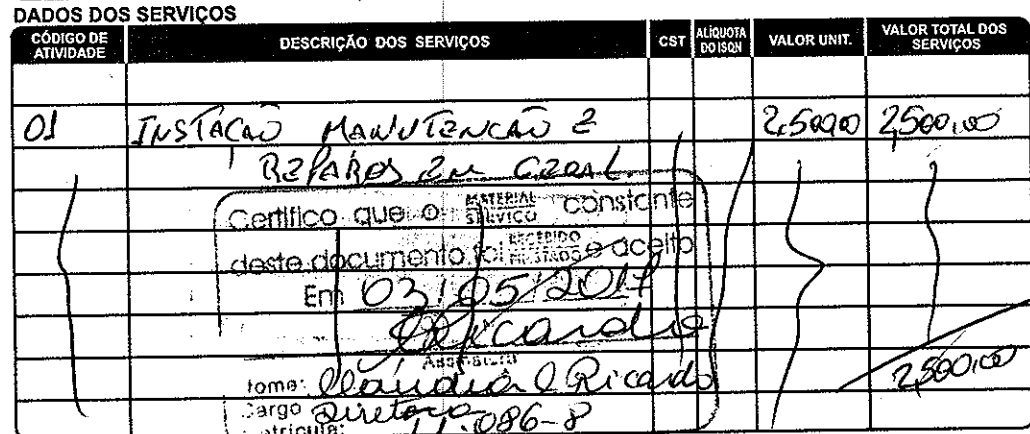 DADOS DOS SERVIÇOS
CÓDIGO DE ATIVIDADE DESCRIÇÃO DOS SERVIÇOS CST ALÍQUOTA DO ISQN VALOR UNIT. VALOR TOTAL DOS SERVIÇOS
01 INSTAÇÃO MANUTENCÃO E 2,500,00 2,500,00
REPAROS EM GERAL
Certifico que o MATERIAL SERVIÇO constante
deste documento foi RECEBIDO PRESTADOS e aceito
Em 03/05/2017
Assinatura
Nome: Claudia Ricardo
2,500,00
Cargo Diretora
Matricula: 11.086-8